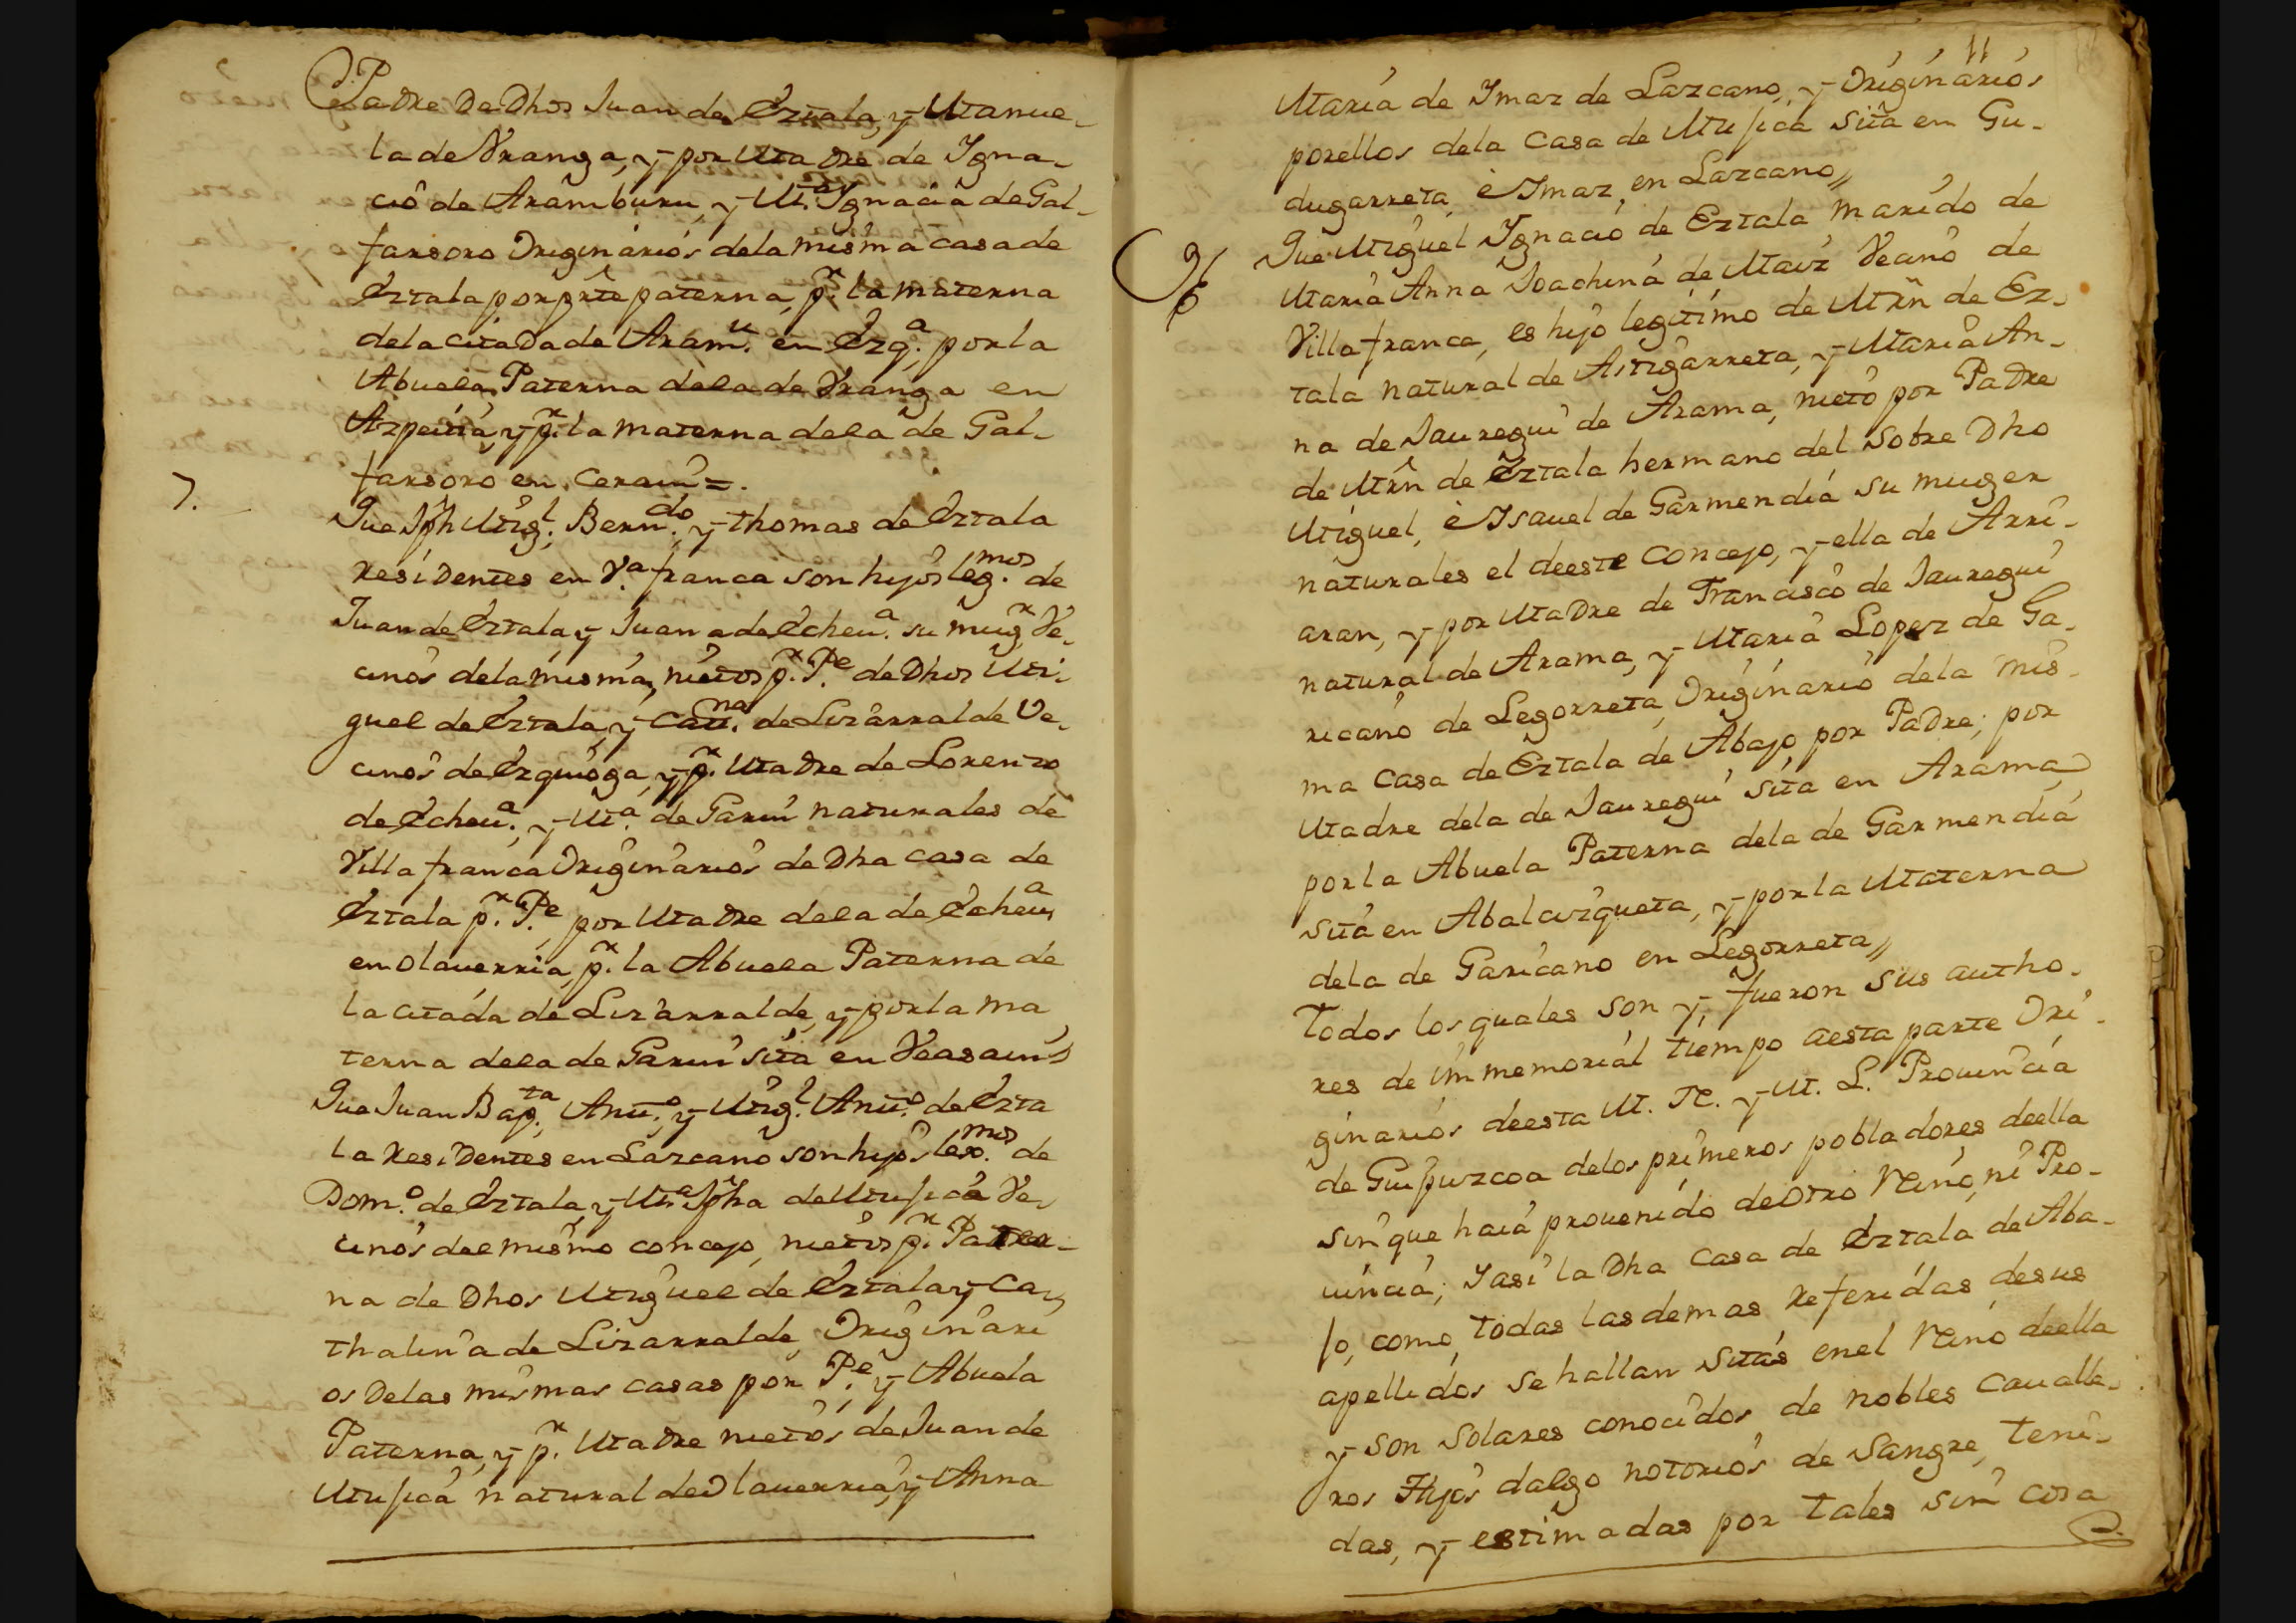 Padre de Dhos Juan de Eztala, y Manue-
la de Vranga, y por Madre de Igna-
cio de Aramburu, y M.ª Ignacia de Gal-
farsoro Originarios de la misma casa de
Eztala por prte paterna, p.r la materna
de la citada de Aram.u en Ezq.a, por la
Abuela Paterna de la de Vranga en
Azpeitia, y p.r la materna de la de Gal-
farsoro en Cerain =.
7. Que Jph Mig.l, Bern.do, y thomas de Eztala
residentes en V.a franca son hijos leg.mos de
Juan de Eztala, y Juana de Echeu.a su mug.r Ve-
cinos de la misma, nietos p.r P.e de Dhos Mi-
guel de Eztala, y Cat.na de Lizarralde Ve-
cinos de Ezquioga, y p.r Madre de Lorenzo
de Echeu.a, y M.a de Garin naturales de
Villafranca Originarios de Dha casa de
Eztala p.r P.e, por Madre de la de Echeu.a
en Olauerria, p.r la Abuela Paterna de
la citada de Lizarralde, y por la ma
terna de la de Garin sita en Veasain
Que Juan Bap.ta, Ant.o, y Mig.l Ant.o de Ezta
la residentes en Lazcano son hijos leg.mos de
Dom.o de Eztala, y M.a Jpha de Mujica Ve-
cinos del mismo concejo, nietos p.r Pater-
na de Dhos Miguel de Eztala y Ca-
thalina de Lizarralde, Originari
os de las mismas casas por P.e, y Abuela
Paterna, y p.r Madre nietos de Juan de
Mujica natural de Olauerria, y Anna
11
Maria de Ymaz de Lazcano, y Originarios
por ellos de la Casa de Mujica sita en Gu-
dugarreta, è Ymaz, en Lazcano,,
Que Miguel Ygnacio de Eztala marido de
Maria Anna Joachina de Mauz Vecino de
Villafranca, es hijo legitimo de Mrñ de Ez-
tala natural de Astigarreta, y Maria An-
na de Jauregui de Arama, nieto por Padre
de Mrñ de Eztala hermano del sobre Dho
Miguel, è Ysauel de Garmendia su muger
naturales el de este concejo, y ella de Arri-
aran, y por Madre de Francisco de Jauregui
natural de Arama, y Maria Lopez de Ga-
ricano de Legorreta, Originario de la mis-
ma Casa de Eztala de Abajo por Padre; por
Madre de la de Jauregui sita en Arama
por la Abuela Paterna de la de Garmendia
sita en Abalcizqueta, y por la Materna
de la de Garicano en Legorreta,,
Todos los quales son y, fueron sus autho-
res de immemorial tiempo aesta parte Ori-
ginarios de esta M. N. y M. L. Prouincia
de Guipuzcoa de los primeros pobladores de ella
sin que haia prouenido de otro Reino, ni Pro-
uincia; Y asi la Dha Casa de Eztala de Aba-
jo, como, todas las demas referidas, de sus
apellidos se hallan sitas en el Reino de ella
y son Solares conocidos de nobles Caualle-
ros Hijos dalgo notorios de Sangre, teni-
das, y estimadas por tales sin cosa